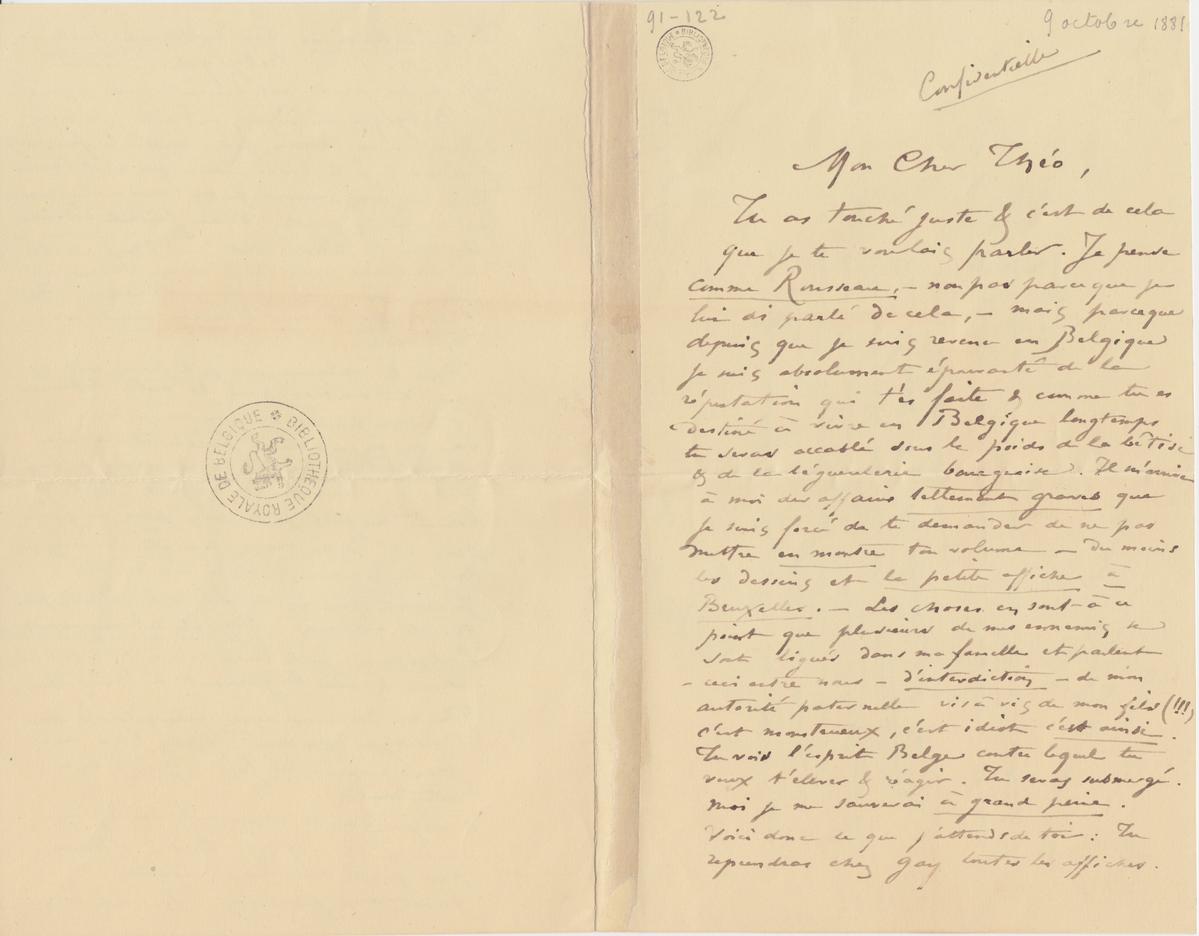 BIBLIOTHÈQUE ROYALE DE BELGIQUE
91-122
9 octobre 1881
Confidentielle
Mon Cher Théo,
Tu as touché juste & c'est de cela
que je te voulais parler. Je pense
comme Rousseau, – non pas parceque je
lui ai parlé de cela, – mais parceque
depuis que je suis revenu en Belgique
je suis absolument épouvanté de la
réputation qui t'es faite & comme tu es
destiné à vivre en Belgique longtemps
tu seras accablé sous le poids de la bêtise
& de la bégueulerie bourgeoise. Il m'arrive
à moi des affaires tellement graves que
je suis forcé de te demander de ne pas
mettre en montre ton volume – du moins
les dessins et la petite affiche à
Bruxelles. – Les choses en sont à ce
point que plusieurs de mes ennemis se
sont ligués dans ma famille et parlent
– ceci entre nous – d'interdiction – de mon
autorité paternelle vis à vis de mon fils (!!!)
c'est monstrueux, c'est idiot c'est ainsi.
Tu vois l'esprit Belge contre lequel tu
veux t'élever & réagir. Tu seras submergé.
Moi je me sauverai à grand peine.
Voici donc ce que j'attends de toi : Tu
reprendras chez Gay toutes les affiches.